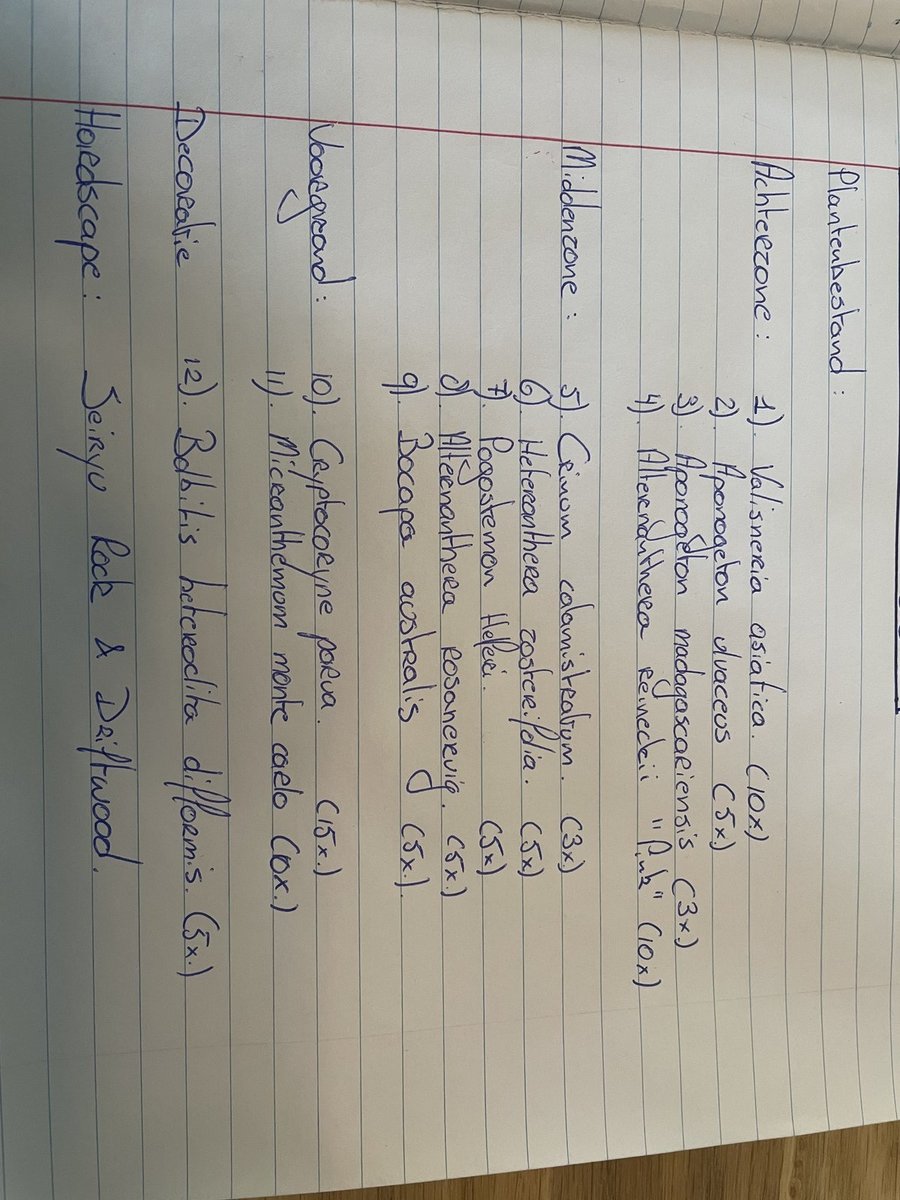 Plantenbestand :
Achterzone : 1). Valisneria asiatica. (10x)
2) Aponogeton ulvaceus (5x.)
3) Aponogeton madagascariensis (3x.)
4) Alterenanthera reineckii "Pink" (10x)
Middenzone : 5). Crinum calamistratum. (3x.)
6) Heteranthera zosterifolia. (5x)
7). Pogostemon Helferi. (5x)
8) Alternanthera rosanervig. (5x.)
9). Bacopa australis (5x.).
Voorgrond : 10). Cryptocoryne parva. (15x.)
11). Micranthemum monte carlo (10x.)
Decoratie 12). Bolbitis heteroclita difformis. (5x.)
Hardscape : Seiryu Rock & Driftwood.